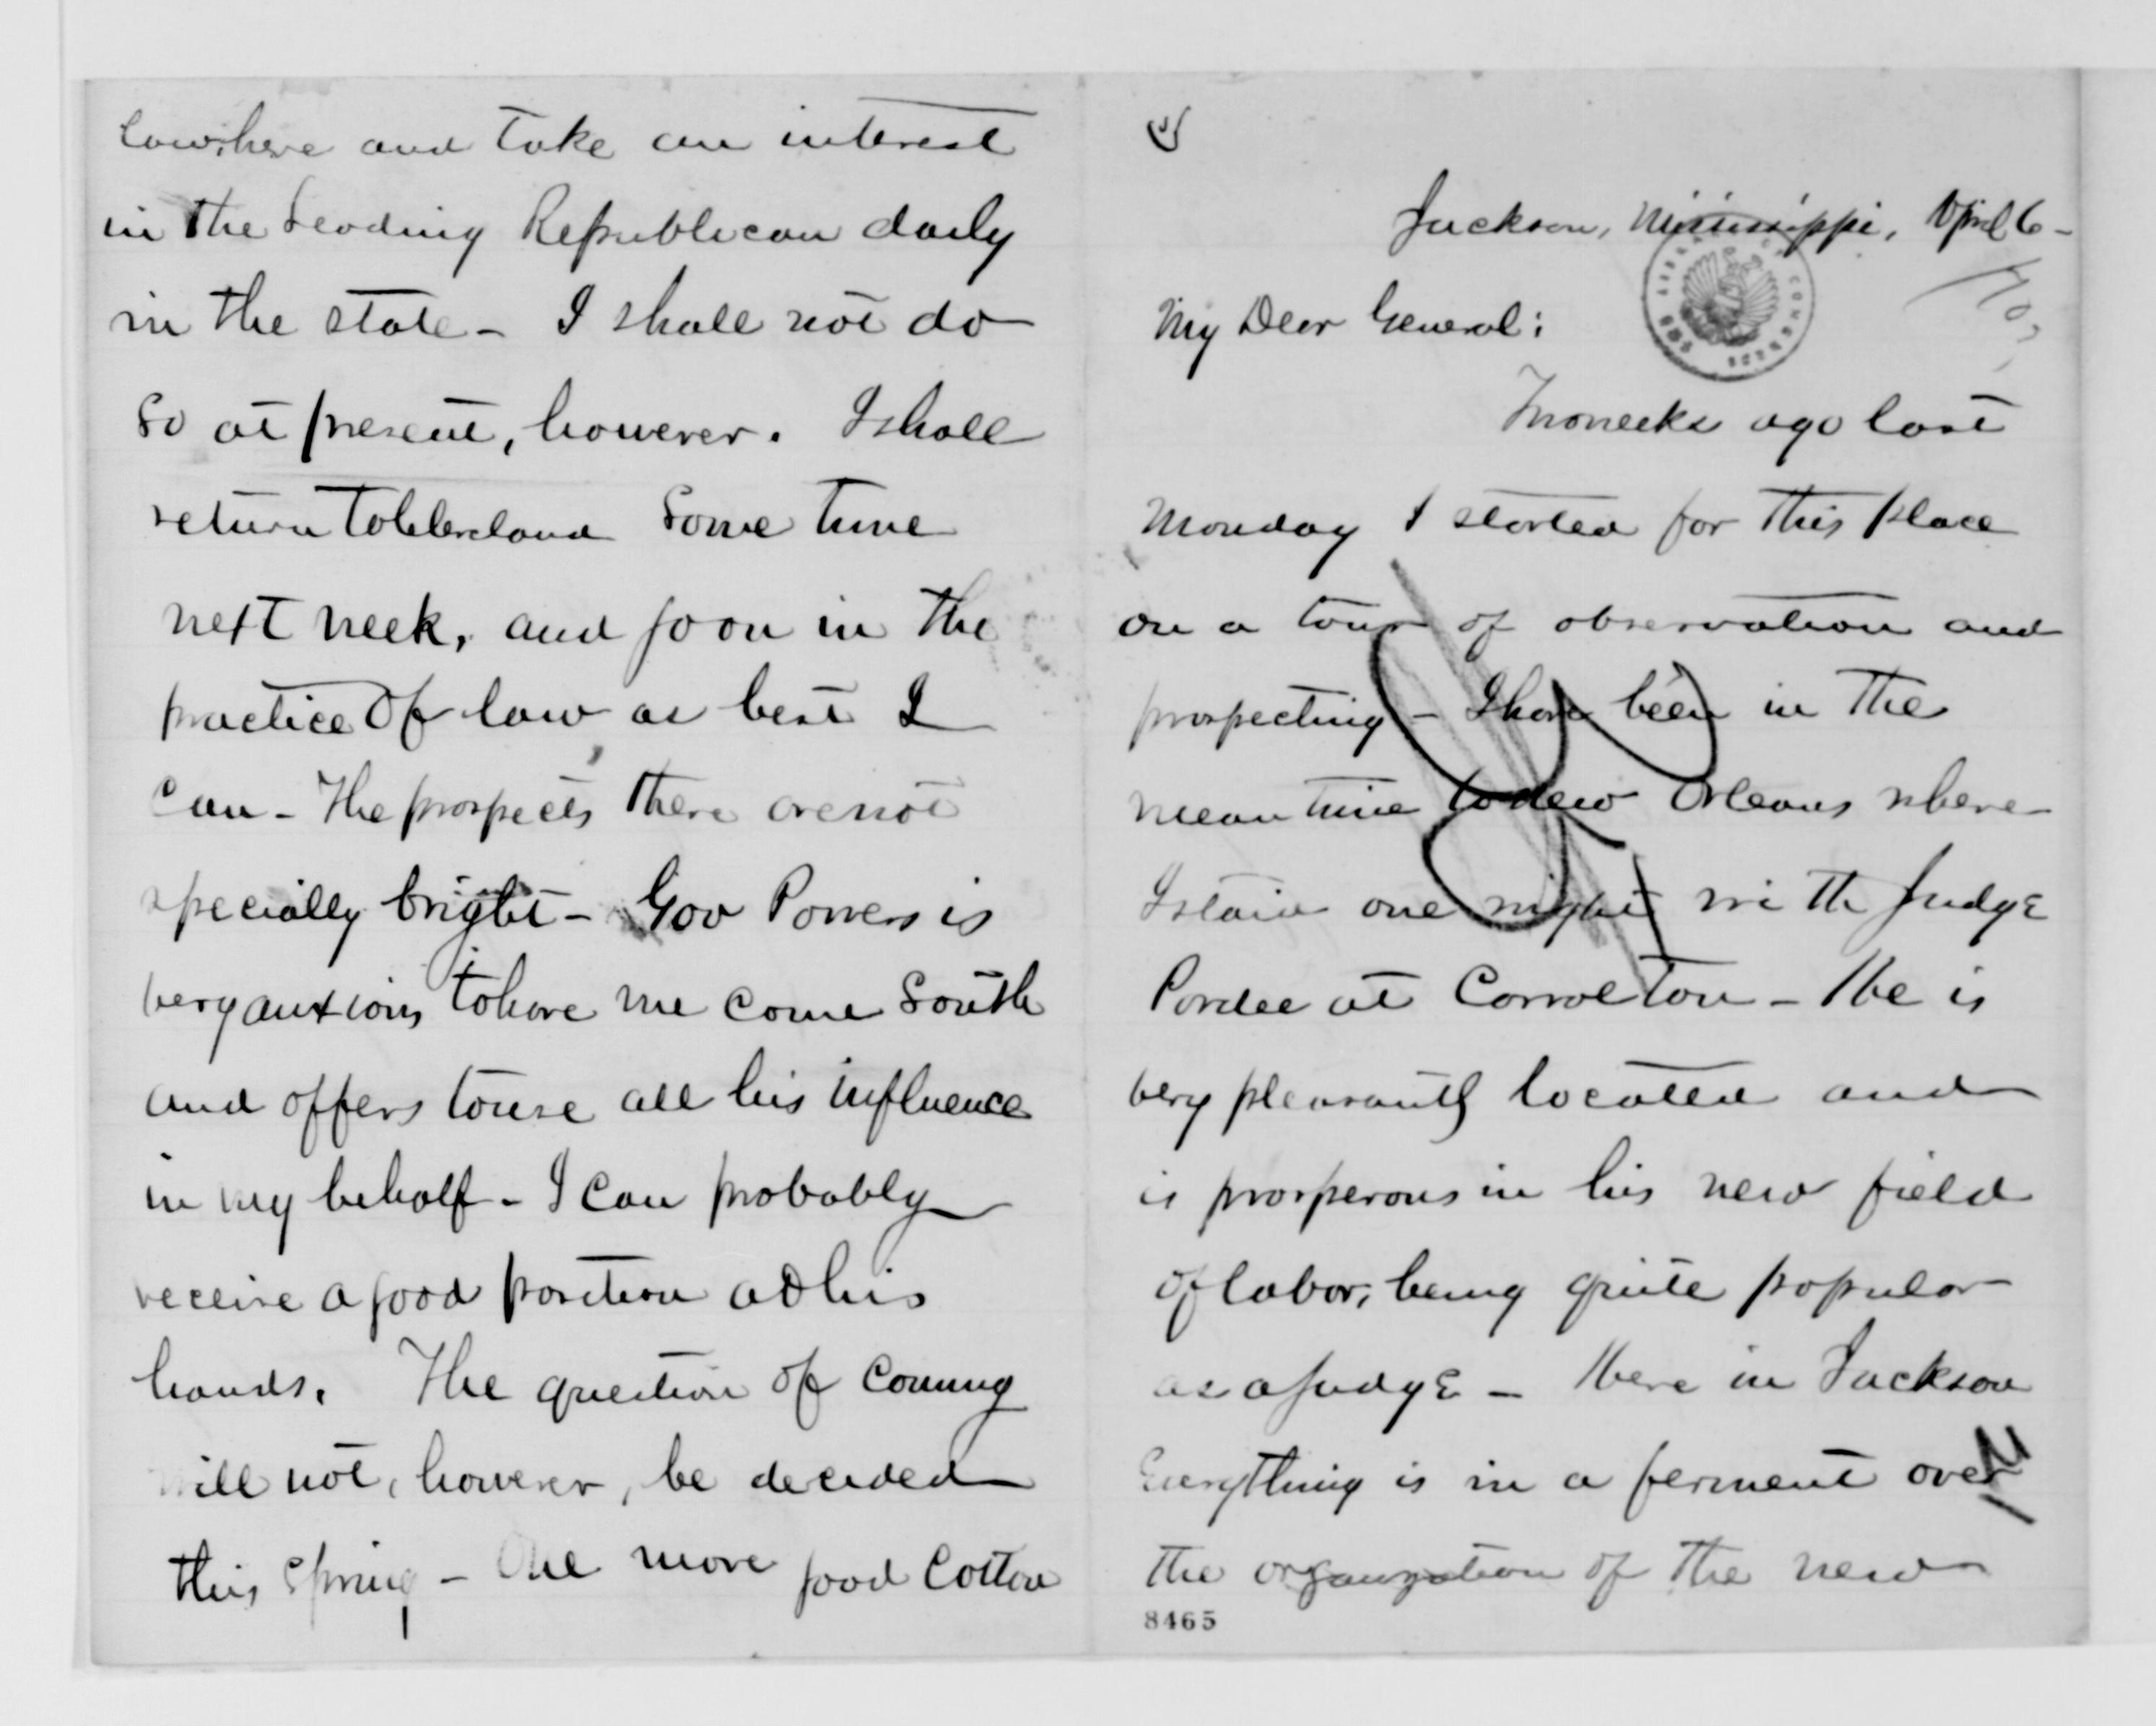 Jackson, Mississippi, April 6 -
My Dear General:
Two weeks ago last
Monday I started for this place
on a tour of observation and
prospecting - I have been in the
mean time to New Orleans where
I staid one night with Judge
Pardee at Carrolton - He is
very pleasantly located and
is prosperous in his new field
of labor, being quite popular
as a Judge - Here in Jackson
Everything is in a ferment over
the organization of the new
8465
law here and take an interest
in the Leading Republican daily
in the state - I shall not do
so at present, however. I shall
return to Cleveland some time
next week, and go on in the
practice of law as best I
can - The prospects there are not
specially bright - Gov Powers is
very anxious to have me come South
and offers to use all his influence
in my behalf - I can probably
receive a good position at his
hands. The question of coming
will not, however, be decided
this Spring - One more good Cotton